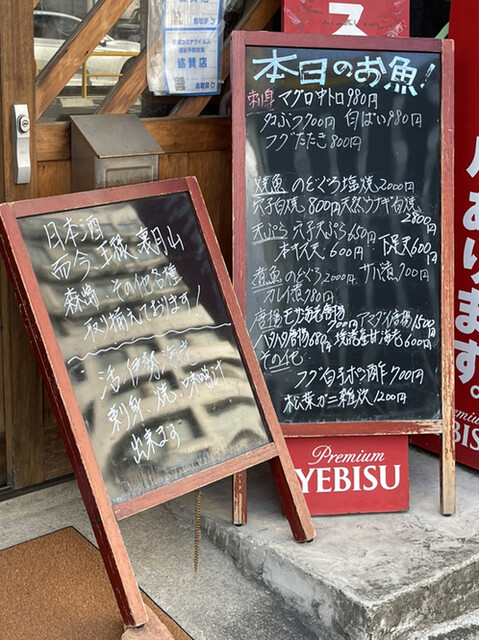 本日のお魚!
刺身 マグロ中トロ 980円
タコぶつ 700円 白ばい 980円
フグたたき 800円
焼魚 のどぐろ塩焼 2000円
穴子白焼 800円 天然ウナギ白焼 2800円
天ぷら 穴子天ぷら 650円
キス天 600円
煮魚 のどぐろ 2000円 サバ煮 700円
カレイ煮 980円
唐揚 モサ海老唐揚 900円 アマダイ唐揚 1500円
ハタハタ唐揚 680円 600円
その他
フグ白子ポン酢 900円
松葉ガニ雑炊 1200円
日本酒
而今、王祿、裏月山
その他各種
取り揃えております!
活 伊勢海老
刺身、焼、味噌汁
出来ます
協賛店
ス
あります。
Premium
YEBISU
Premium